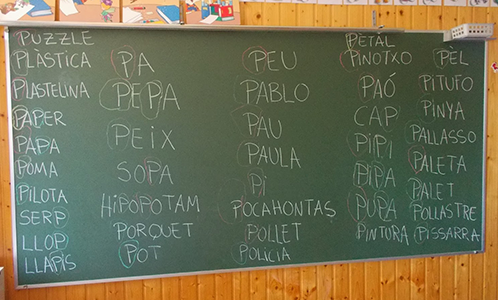 PUZZLE
PLÀSTICA
PLASTELINA
PAPER
PAPA
POMA
PILOTA
SERP
LLOP
LLAPIS
PA
PEPA
PEIX
SOPA
HIPOPOTAM
PORQUET
POT
PEU
PABLO
PAU
PAULA
PI
POCAHONTAS
POLLET
POLICIA
PETAL
PINOTXO
PAÓ
CAP
PIPI
PIPA
PUPA
PINTURA
PÈL
PITUFO
PINYA
PALLASSO
PALETA
PALET
POLLASTRE
PISSARRA